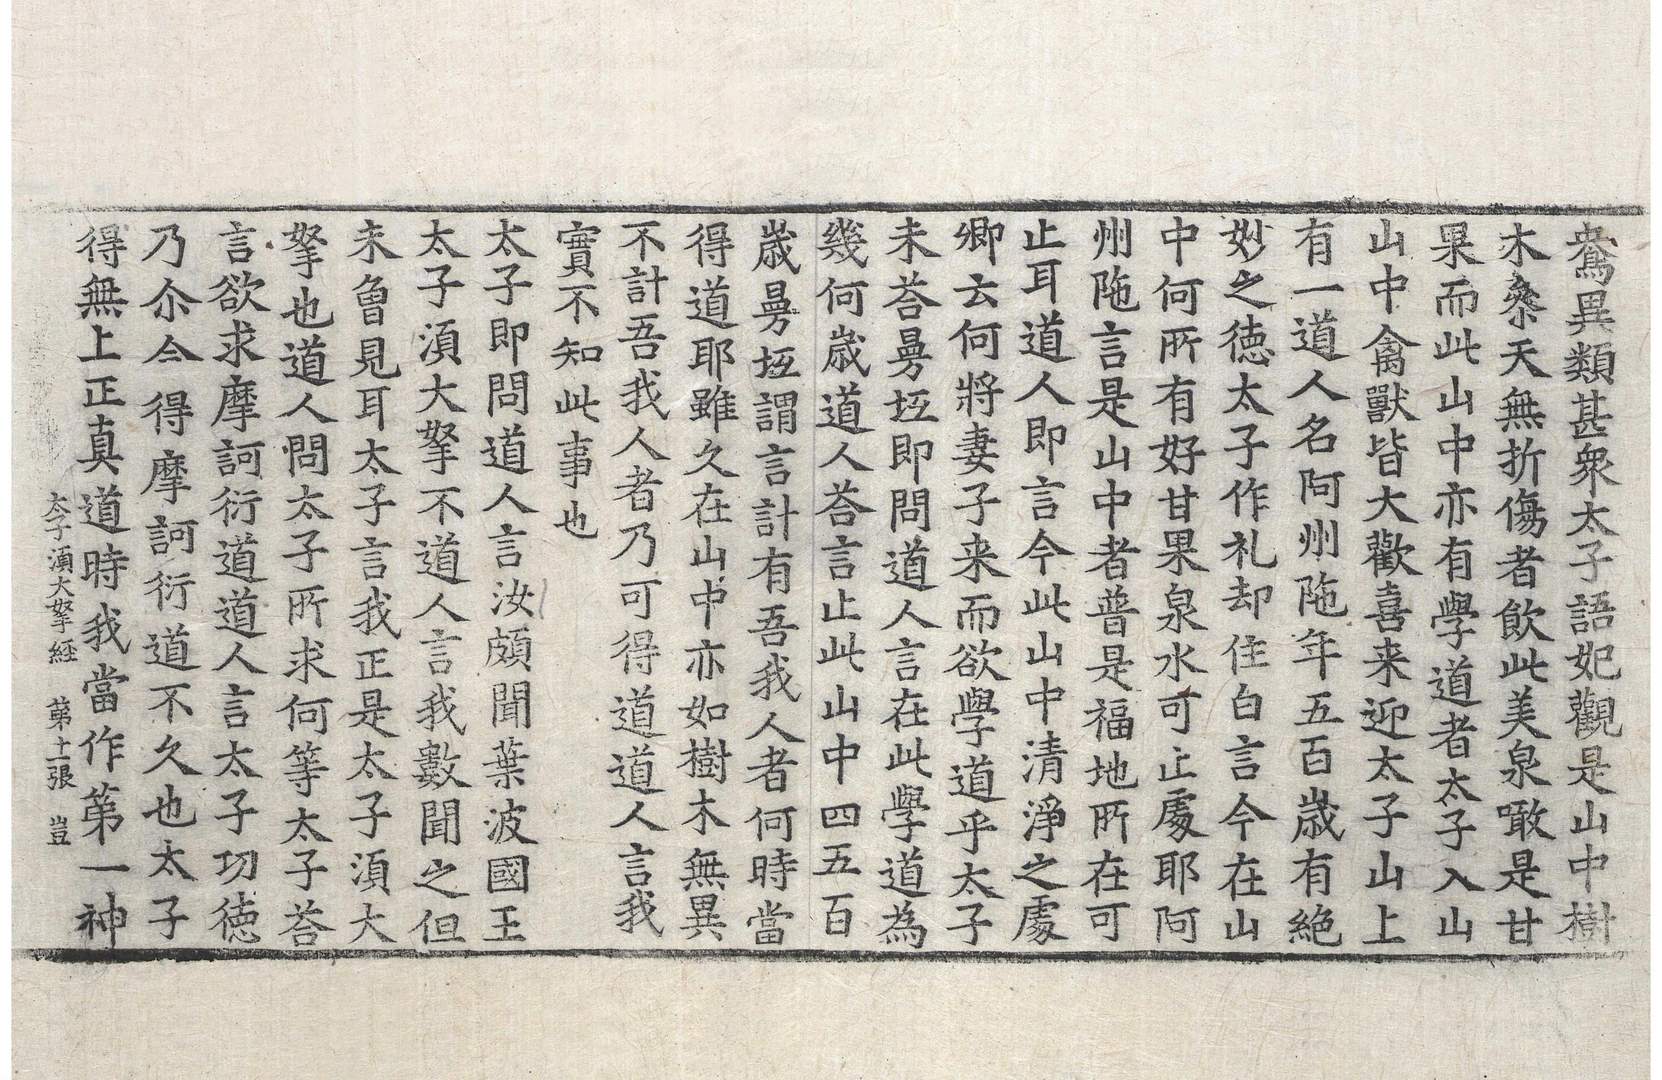 鴦異類甚衆太子語妃觀是山中樹
木叅天無折傷者飲此美泉噉是甘
果而此山中亦有學道者太子入山
山中禽獸皆大歡喜来迎太子山上
有一道人名阿州陁年五百歲有絶
妙之徳太子作礼却住白言今在山
中何所有好甘果泉水可止處耶阿
州陁言是山中者普是福地所在可
止耳道人即言今此山中清淨之處
卿云何將妻子来而欲學道乎太子
未荅曼坻即問道人言在此學道為
幾何歲道人荅言止此山中四五百
歲曼坻謂言計有吾我人者何時當
得道耶雖久在山中亦如樹木無異
不計吾我人者乃可得道道人言我
實不知此事也
太子即問道人言汝頗聞葉波國王
太子湏大拏不道人言我數聞之但
未曾見耳太子言我正是太子湏大
拏也道人問太子所求何等太子荅
言欲求摩訶衍道道人言太子功徳
乃尒今得摩訶衍道不久也太子
得無上正真道時我當作第一神
太子湏大拏經 苐十一張 豈